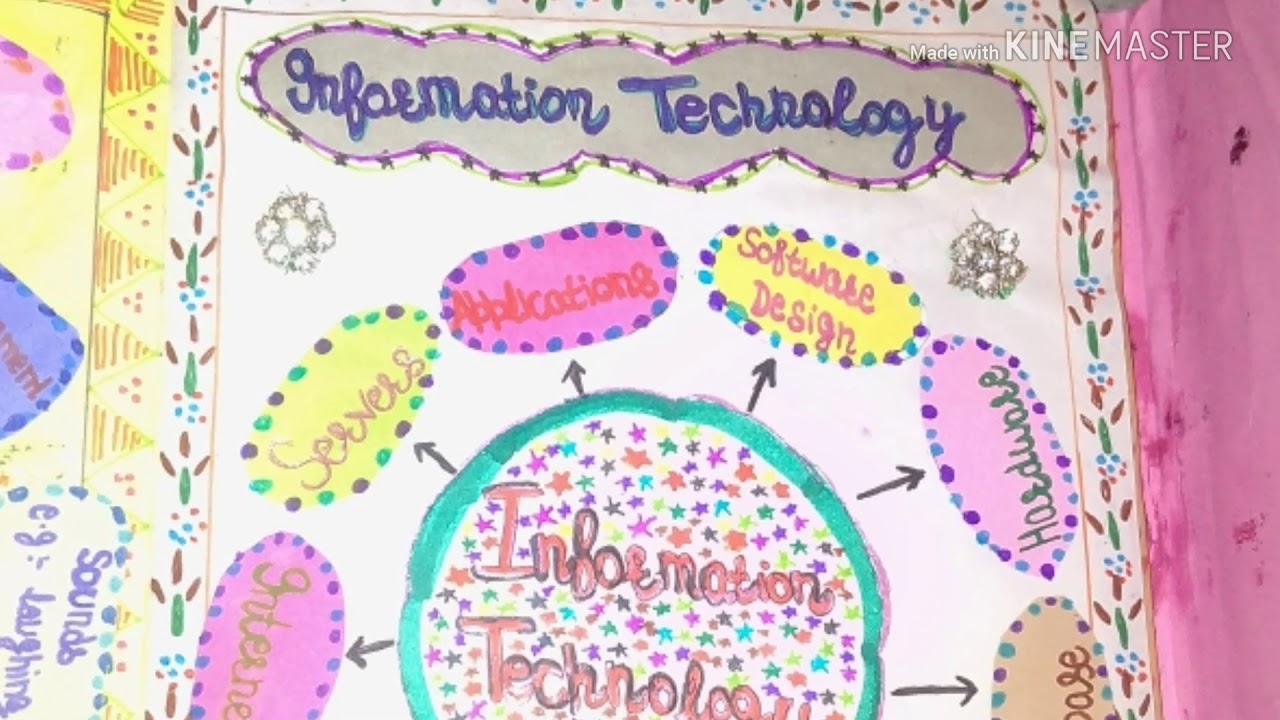 Made with KINEMASTER
Information Technology
Applications
Software
Design
Servers
Hardware
Information
Technology
Sounds
e.g:- laughing